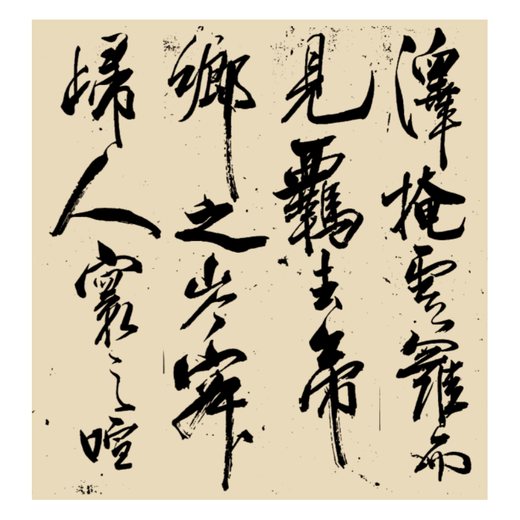 澤掩雲羅而
見羈去帝
鄉之岑寂
歸人寰之喧